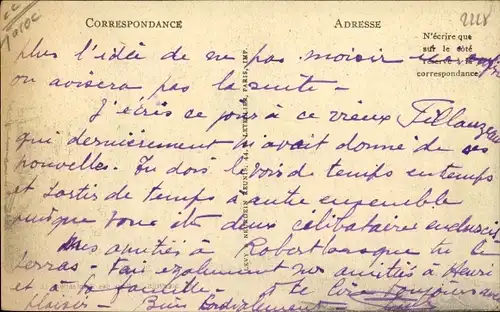 2228
Maroc
CORRESPONDANCE
ADRESSE
N'écrire que
sur le côté
réservé à la
correspondance
plus l'idée de ne pas moisir
on avisera pas la suite -
J'écris ce jour à ce vieux Fillauzeau
qui dernièrement m'avait donné de ses
nouvelles. Tu dois le voir de temps en temps
et sortir de temps à autre ensemble
puisque vous êtes deux célibataires endurcis
Mes amitiés à Robert lorsque tu le
verras - Fais également mes amitiés à Henri
et à sa famille - à te lire toujours avec
plaisir - Bien Cordialement -
LEVY ET NEURDEIN RÉUNIS, 44, LETELLIER, PARIS, IMP.